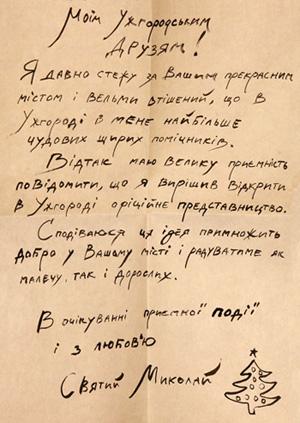 Моїм Ужгородським
Друзям!
Я давно стежу за Вашим прекрасним
містом і вельми втішений, що в
Ужгороді в мене найбільше
чудових щирих помічників.
Відтак маю велику приємність
повідомити, що я вирішив відкрити
в Ужгороді офіційне представництво.
Сподіваюся ця ідея примножить
добро у Вашому місті і радуватиме як
малечу, так і дорослих.
В очікуванні приємної події
і з любов'ю
Святий Миколай